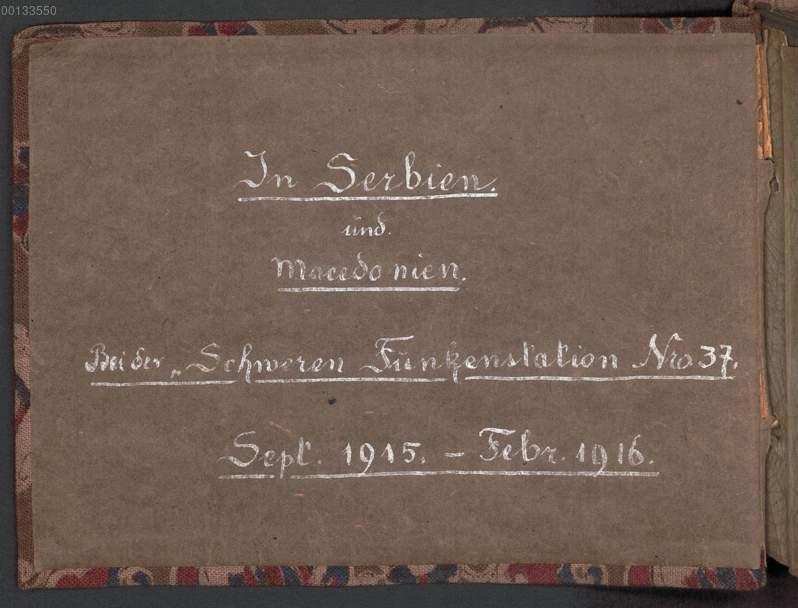 00133550
In Serbien.
und
Macedonien.
Bei der „Schweren Funkenstation Nro 37.
Sept. 1915. – Febr. 1916.